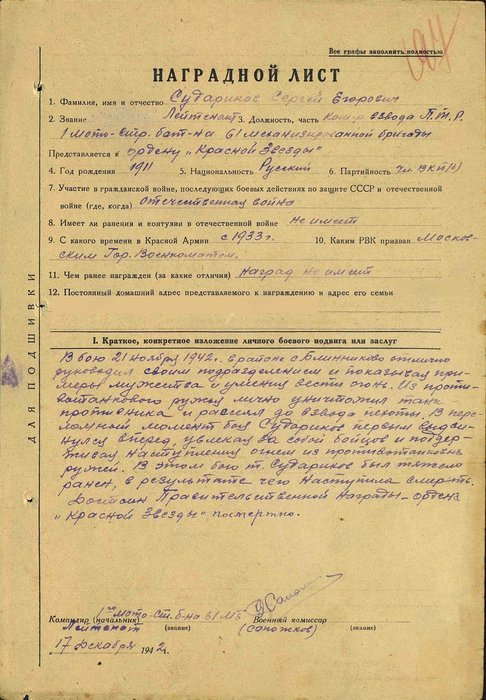 Все графы заполнять полностью
НАГРАДНОЙ ЛИСТ
1. Фамилия, имя и отчество Судариков Сергей Егорович
2. Звание Лейтенант 3. Должность, часть Ком-р взвода П.Т.Р.
1 Мото-Стр. бат-на 61 механизированной бригады
Представляется к ордену „Красной Звезды"
4. Год рождения 1911 5. Национальность Русский 6. Партийность чл. ВКП(б)
7. Участие в гражданской войне, последующих боевых действиях по защите СССР и отечественной
войне (где, когда) отечественная война
8. Имеет ли ранения и контузии в отечественной войне не имеет
9. С какого времени в Красной Армии с 1933 г. 10. Каким РВК призван Москов-
ским Гор. Военкоматом.
11. Чем ранее награжден (за какие отличия) наград не имеет
12. Постоянный домашний адрес представляемого к награждению и адрес его семьи
ДЛЯ ПОДШИВКИ
I. Краткое, конкретное изложение личного боевого подвига или заслуг
В бою 21 ноября 1942 г. в районе с Блинниково отлично
руководил своим подразделением и показывал при-
меры мужества и умения вести огонь. Из проти-
вотанкового ружья лично уничтожил танк
противника и рассеял до взвода пехоты. В пере-
ломный момент боя Судариков первым выдви-
нулся вперед, увлекая за собой бойцов и поддер-
живая наступление огнем из противотанковых
ружей. В этом бою т. Судариков был тяжело
ранен, в результате чего наступила смерть.
Достоин Правительственной Награды-ордена
„Красной Звезды" посмертно.
1го Мото-Ст. б-на 61 МБ
Командир (начальник) Военный комиссар
Лейтенат (звание) (Сапожков) (звание)
17 Декабря 1942 г.